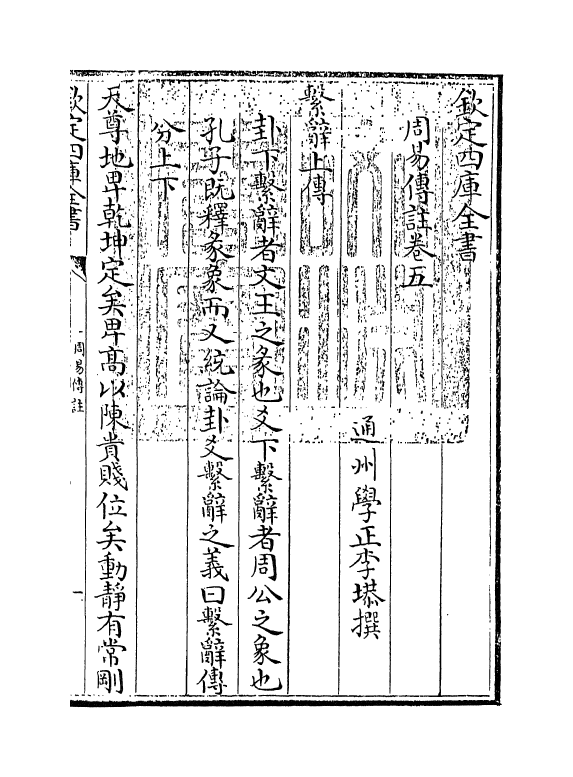 欽定四庫全書
周易傳註卷五
通州學正李塨撰
繫辭上傳
卦下繫辭者文王之彖也爻下繫辭者周公之象也
孔子既釋彖象而又統論卦爻繫辭之義曰繫辭傳
分上下
天尊地卑乾坤定矣卑高以陳貴賤位矣動靜有常剛
欽定四庫全書
周易傳註
一